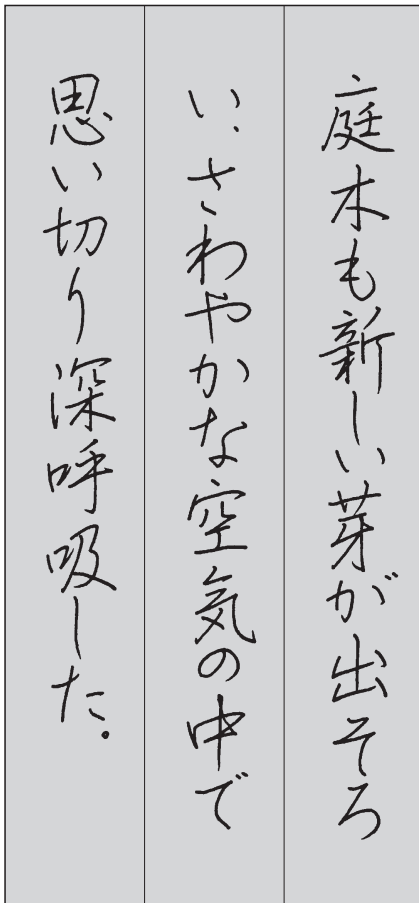 庭木も新しい芽が出そろ
い、さわやかな空気の中で
思い切り深呼吸した。